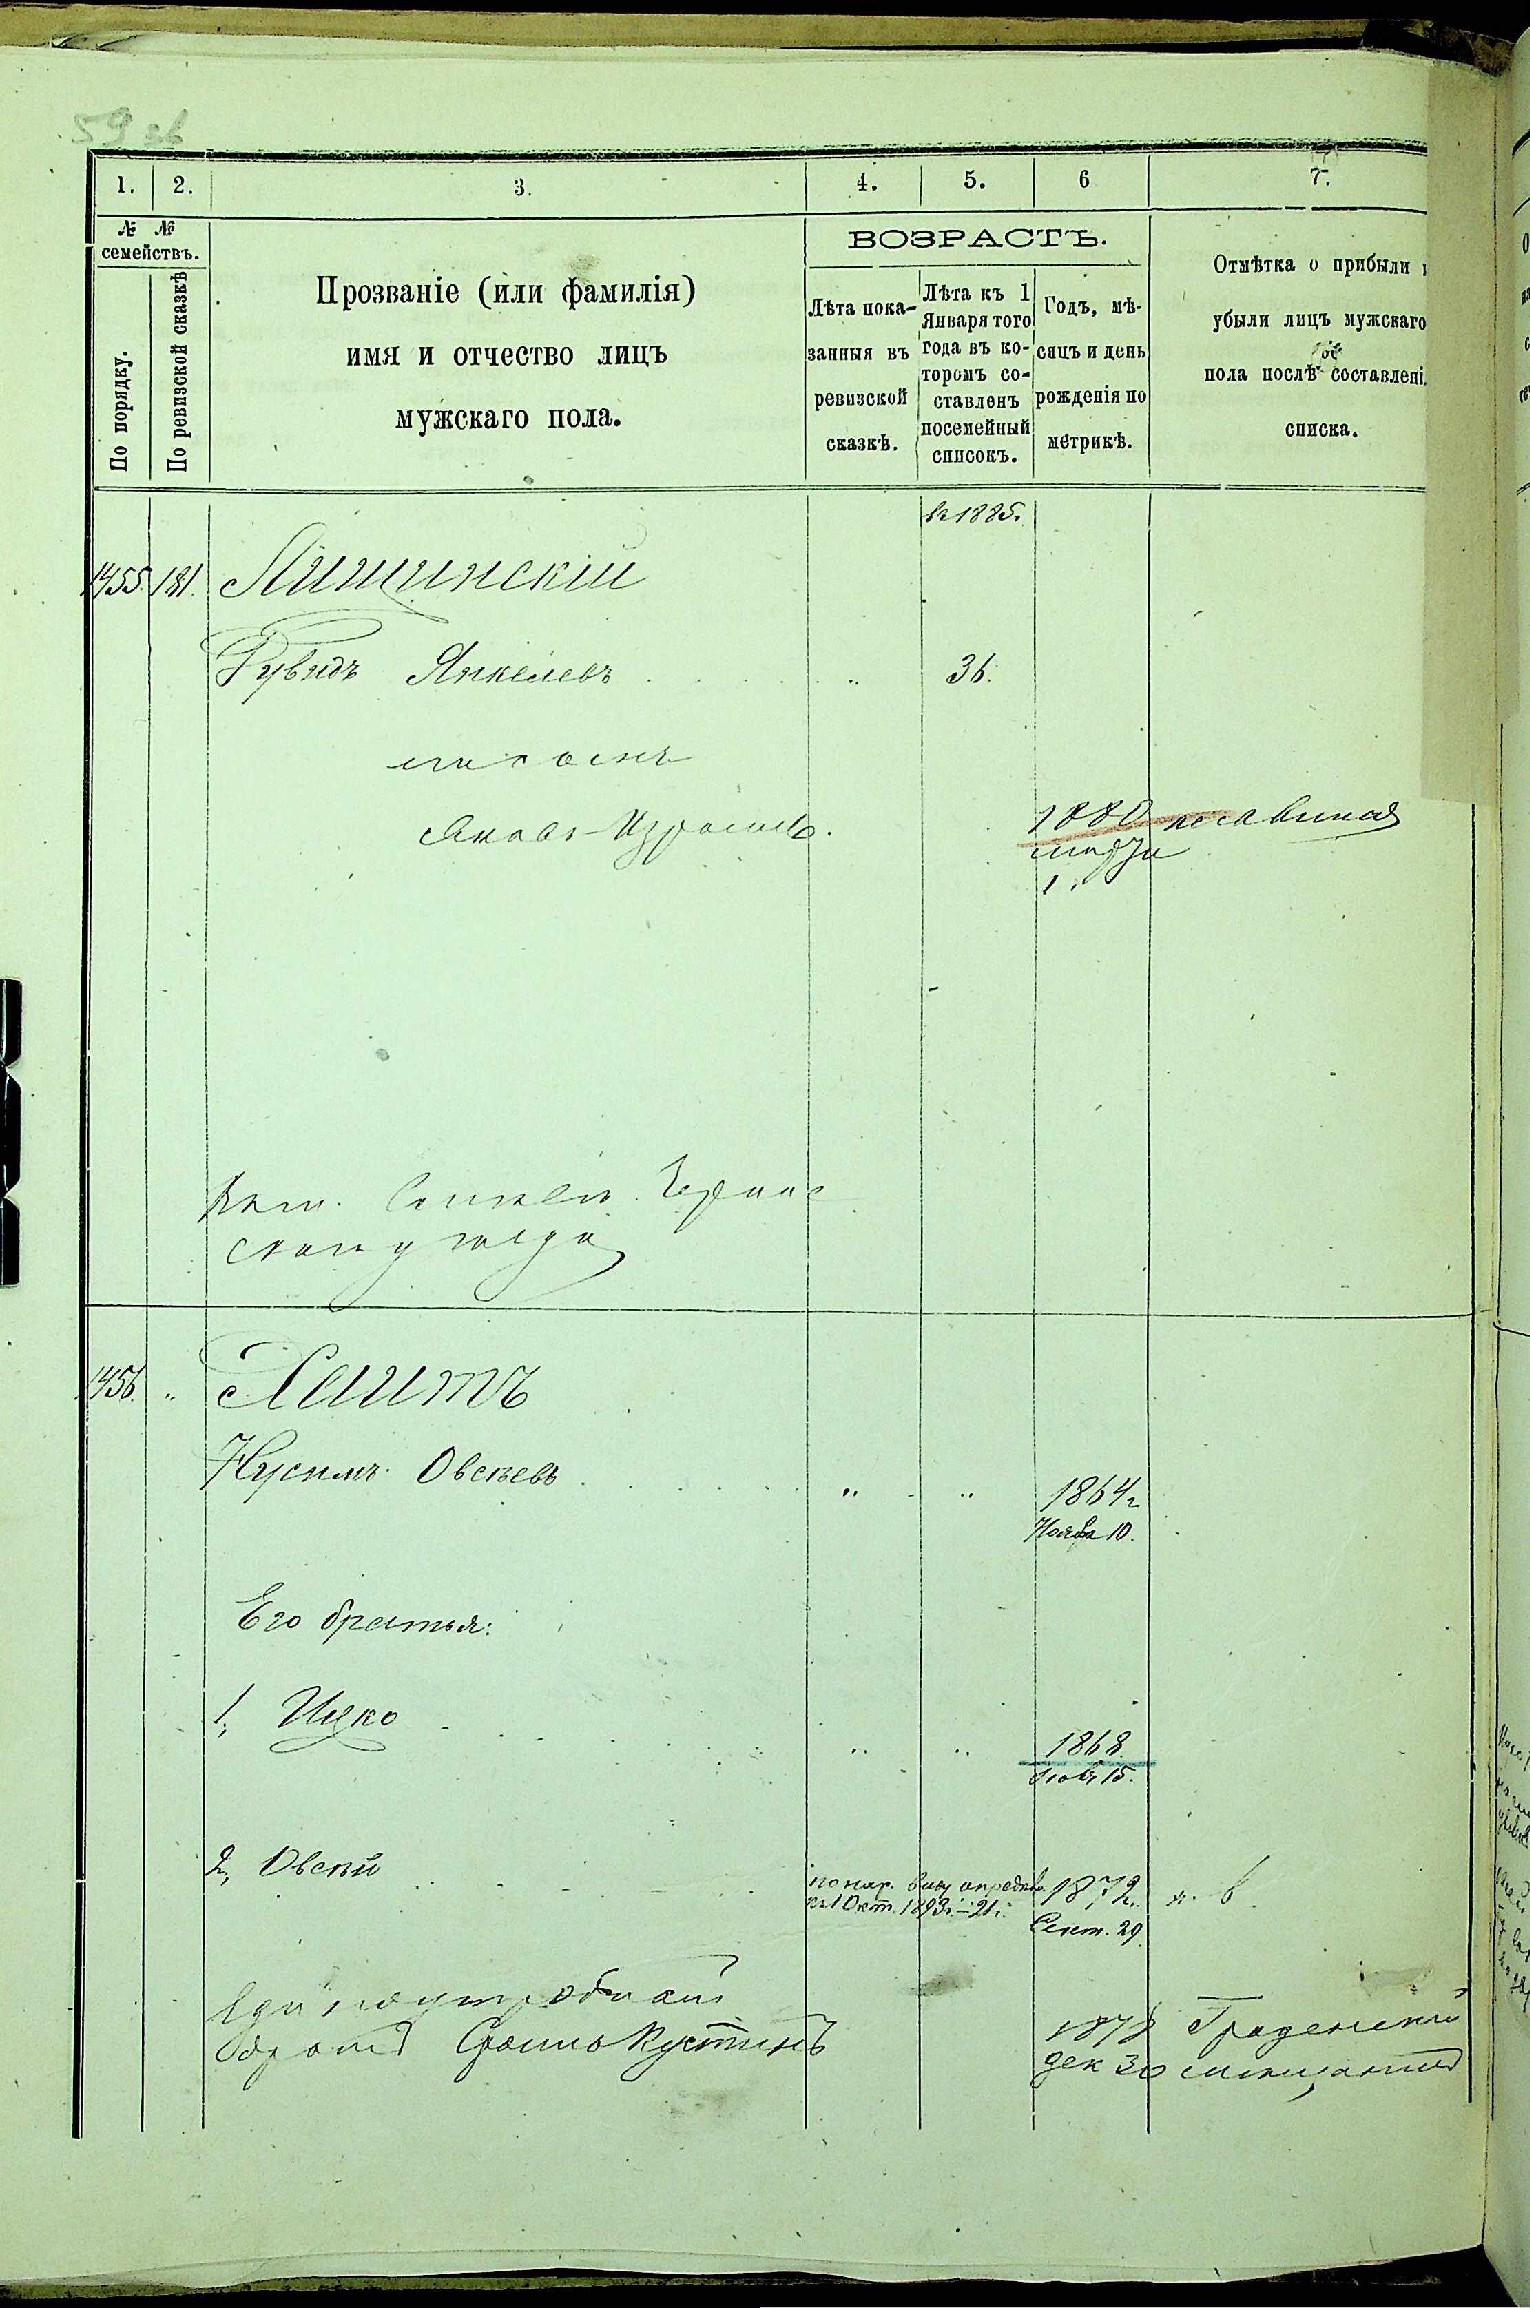 59 об
1. 2. 3. 4. 5. 6 7.
№ №
семействъ.
По порядку.
По ревизской сказкѣ
Прозваніе (или фамилія)
имя и отчество лицъ
мужскаго пола.
ВОЗРАСТЪ.
Лѣта пока-
занныя въ
ревизской
сказкѣ.
Лѣта къ 1
Января того
года въ ко-
торомъ со-
ставленъ
посемейный
списокъ.
Годъ, мѣ-
сяцъ и день
рожденія по
метрикѣ.
Отмѣтка о прибыли и
убыли лицъ мужскаго
пола послѣ составлені
списка.
къ 1885.
1455. 181. Лищинскій
Рувидъ Янкелевъ 36.
его сынъ
Янкель-Израиль. 1880
марта
1.
1456. " Хаитъ
Нусимъ Овсѣевъ " " 1864 г.
Ноября 10.
Его братья:
1, Ицко " " 1868
15.
2, Овсѣй по нар. виду опредѣл. 1872 г.
къ 1 Окт. 1893 г. - 21 г.
Сент. 29.
Единоутробный
братъ Сроель Кустинъ 1878 Гроденскій
дек 30 мѣщанинъ